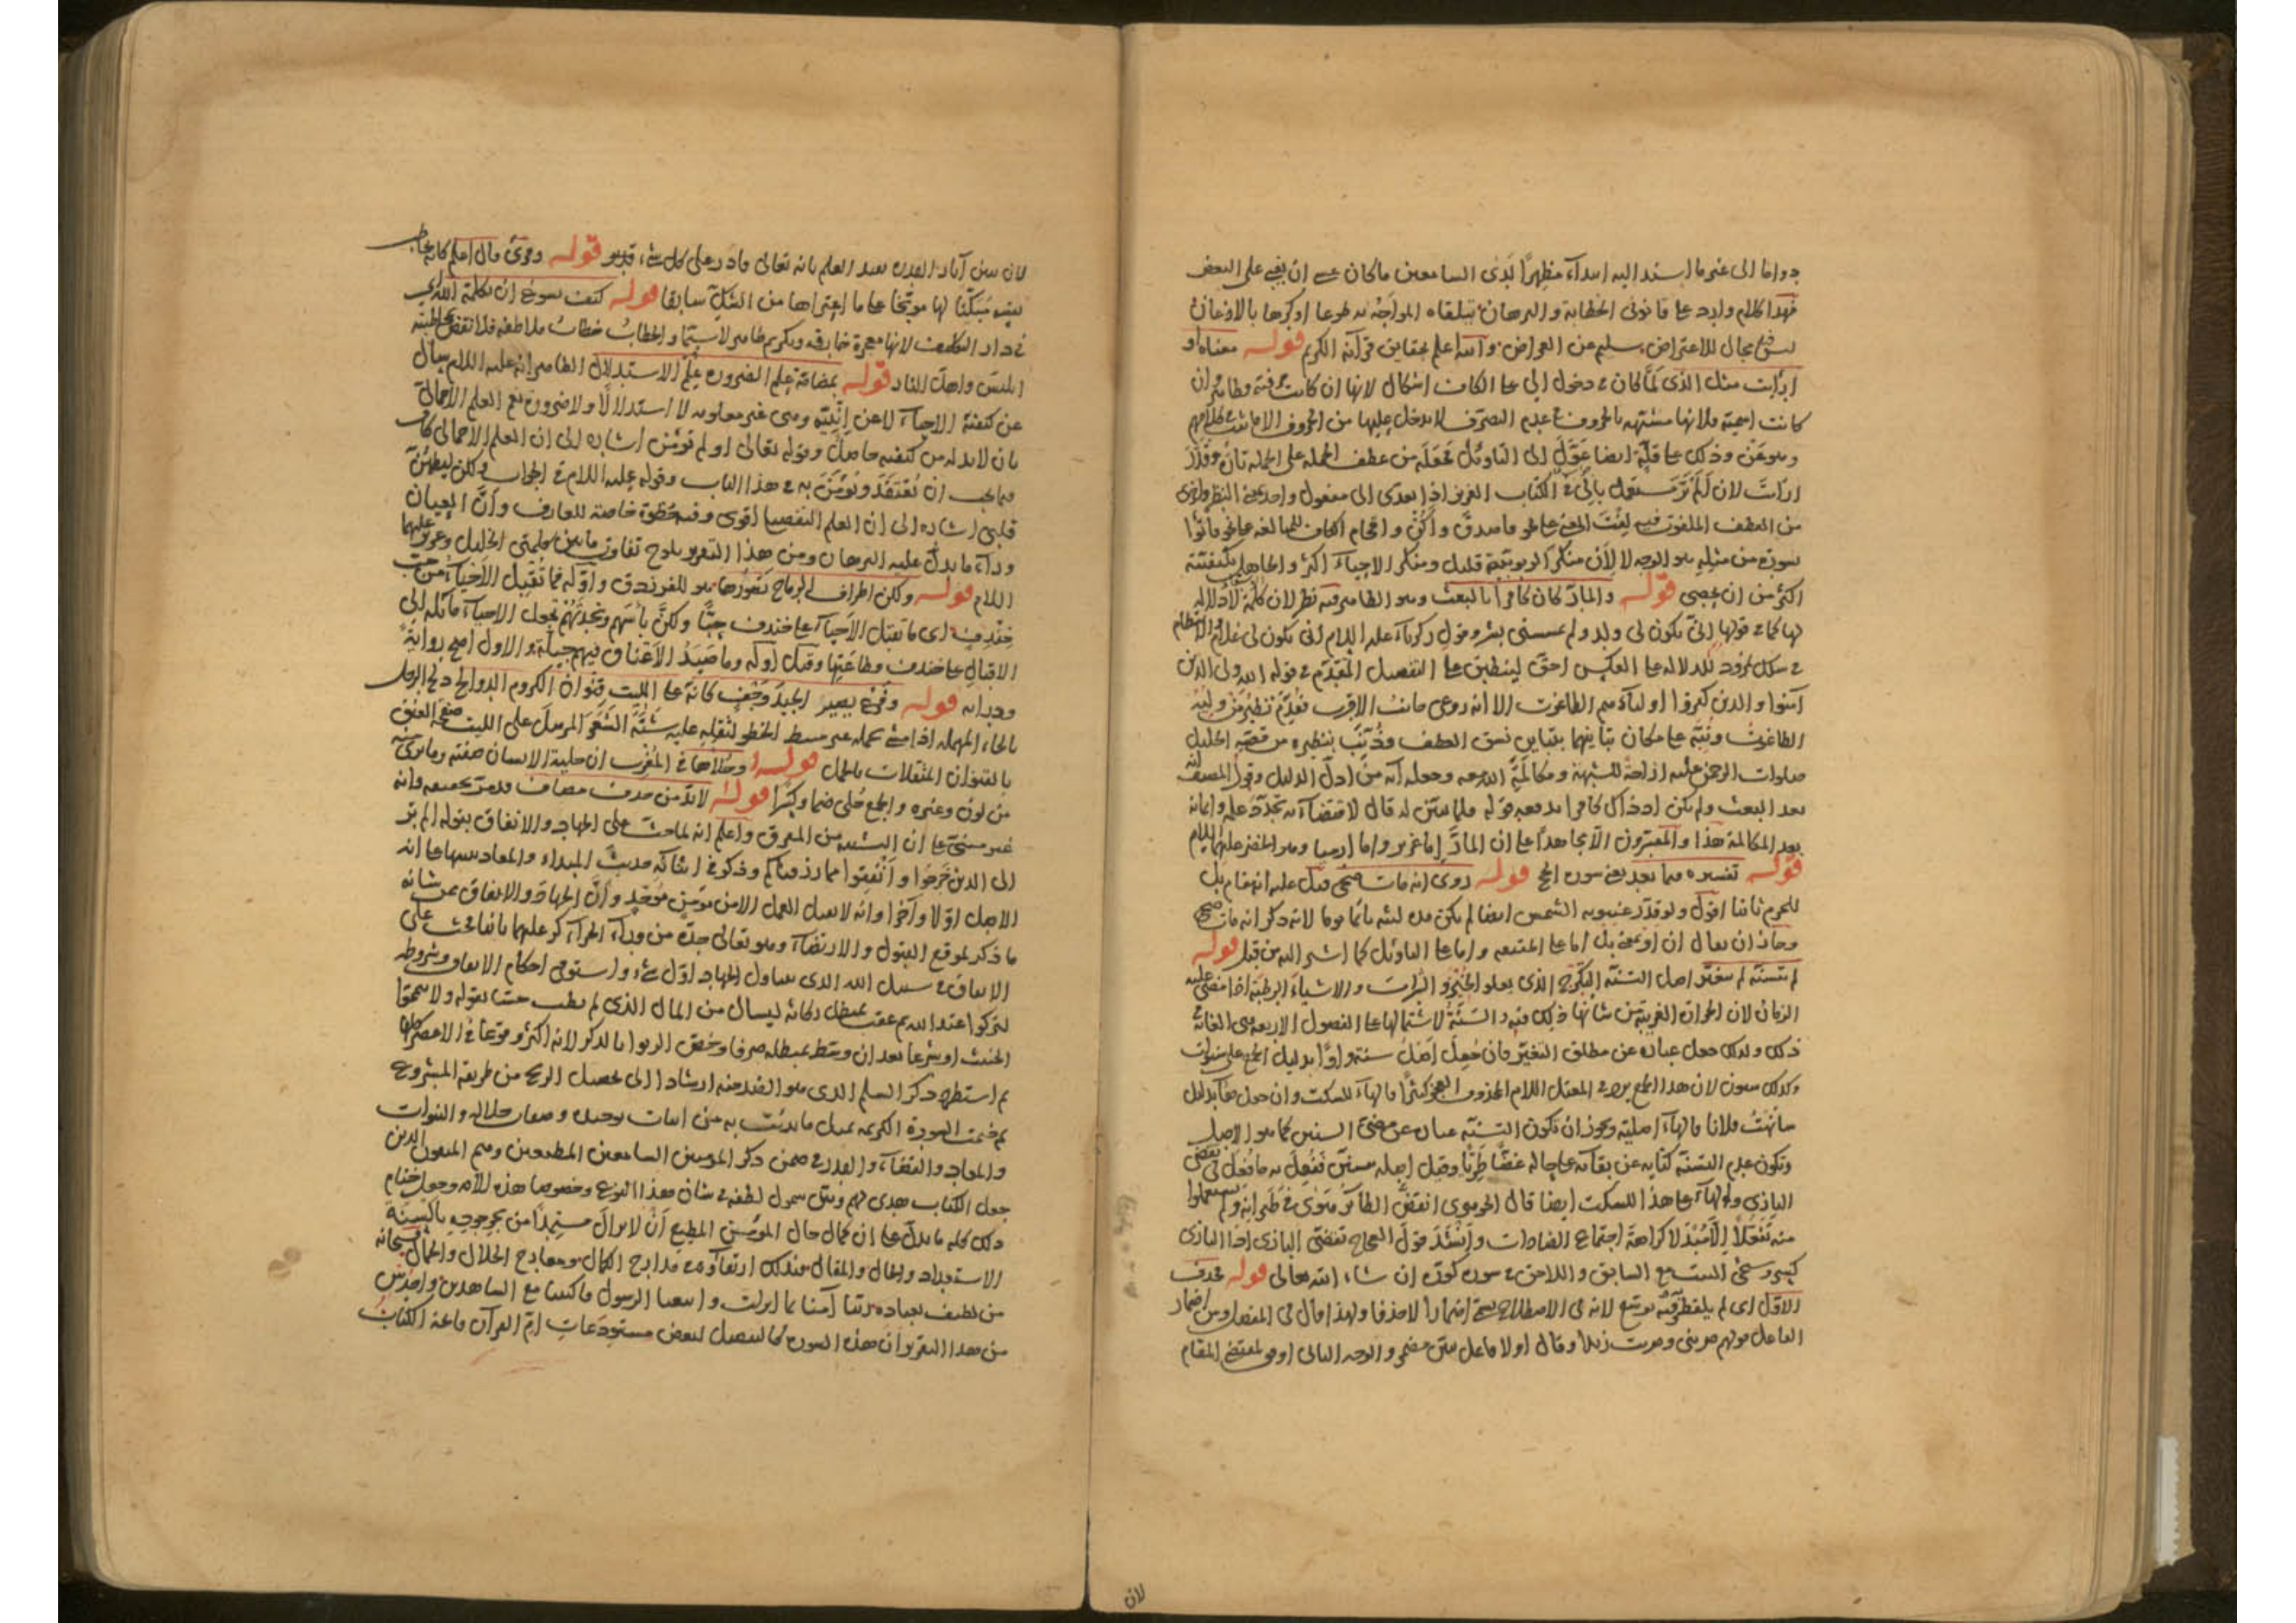 دواما الى غير ما استند اليه ابتداء مظهرا لدى السامعين ما كان عسى ان يخفى على البعض
فهذا كلام وارد على قانونى الخطابة والبرهان يتلقاه المواجه به طوعا او كرها بالاذعان
ليس فيه مجال للاعتراض سليم عن العوارض والله اعلم بحقايق قرآنه الكريم قوله معناه او
ارايت مثل الذى لما كان فى دخول الى على الكاف اشكال لانها ان كانت حرفية فظاهر وان
كانت اسمية فلانها مشبهة بالحروف فى عدم التصرف لا يدخل عليها من الحروف الا ما ثبت فى كلامهم
وهو عن وذلك على قلة ايضا عول الى التاويل تجعله من عطف الجملة على الجملة ثان وقدر
ارايت لان الم تر مستعمل بالى فى الكتاب العزيز اذا يعدى الى مفعول واحد بمعنى النظر
من العطف الملفوت فيه لفت المعنى على نحو فاصدق واكن واقحام الكاف للمبالغة على نحو فاتوا
بسورة من مثله هو الوجه لا لان منكر الربوبية قليل ومنكر الاحياء اكثر والجاهل بكيفيته
اكثر من ان يحصى قوله والمار كان كافرا بالبعث وهو الظاهر فيه نظر لان كلمة لا دلالة
لها كما فى قولها انى يكون لى ولد ولم يمسسنى بشر وقول زكرياء عليه السلام انى يكون لى غلام الانتظام
فى سلك نمرود للدلالة على العكس احق لينطبق على التفصيل المقدم فى قوله الله ولى الذين
آمنوا والذين كفروا اولياؤهم الطاغوت الا انه روعى جانب الاقرب فقدم نظير من وليه
الطاغوت ونبه على مكان تباينهما بتباين نسق العطف وذنب بنظيره من قصة الخليل
صلوات الرحمن عليه ازاحة للشبهة ومكالمة الله معه وجعله آية من ادل الدليل وقول المصنف
بعد البعث ولم يكن اذ ذاك كافرا يدفعه قوله فلما تبين له قال لاقتضائه تجدد علمه وايمانه
بعد المكالمة هذا والمفسرون الا مجاهدا على ان المار اما عزير واما ارميا وهو الخضر عليهما السلام
قوله تفسيره فيما بعد يعنى سورة الحج قوله روى انه مات ضحى قيل عليه انه قام بل
للجزم ثانيا اقول ولو قدر غيبوبة الشمس ايضا لم يكن مدة لبثه مائة يوما لانه ذكر انه مات ضحى
وجاز ان يقال ان او بمعنى بل اما على الحقيقة واما على التاويل كما اشير اليه من قبل قوله
لم يتسنه لم يتغير اصل التسنه التكرج الذى يعلو الخبز والشراب والاشياء الرطبة اذا مضى عليه
الزمان لان الحرارة الغريبة من شانها ذلك فيه والسنة لاشتمالها على الفصول الاربعة هى الغاية فى
ذلك ولذلك جعل عبارة عن مطلق التغير فان جعل اصل سنة واوا بدليل الجمع على سنوات
وكذلك سنون لان هذا الجمع يرد فى المعتل اللام المحذوف العجز كثيرا فالهاء للسكت وان جعل هاء بدليل
سانهت فلانا فالهاء اصلية ويجوز ان يكون التسنه عبارة عن مضى السنين كما هو الاصل
ويكون عدم التسنه كناية عن بقائه على حاله غضا طريا وقيل اصله يتسنن ففعل به ما فعل فى تقضى
البازى والهاء على هذا للسكت ايضا قال الجوهرى انقض الطائر هوى فى طيرانه ولم يستعملوا
منه تفعلا الا مبدلا كراهة اجتماع الضادات وانشد قول العجاج تقضى البازى اذا البازى
كسر وسيجئ البيت مع السابق واللاحق فى سورة كورت ان شاء الله تعالى قوله فحذف
الاول اى لم يلفظ به لانه فى الاصطلاح يسمى اضمارا لا حذفا ولهذا قال فى المفصل ومن اضمار
الفاعل قولهم ضربنى وضربت زيدا وقال اولا فاعل تبين مضمر والوجه الثانى اوفق لمقتضى المقام
لان
لان تبين آثار القدرة بعد العلم بانه تعالى قادر على كل شئ قدير قوله وقرئ قال اعلم كانه يخاطب
نفسه مبكتا لها موبخا على ما اعتراها من الشك سابقا قوله كيف يسوغ ان يكلمه الله اى
فى دار التكليف لانها معجزة خارقة وتكريم ظاهر لا سيما والخطاب خطاب ملاطفة فلا نقض بمخاطبته
ابليس واهل النار قوله بمضامة علم الضرورة علم الاستدلال الظاهر انه عليه السلام سال
عن كيفية الاحياء لا عن انيته وهى غير معلومة لا استدلالا ولا ضرورة نعم العلم الاجمالى
بان لا بد له من كيفية حاصل وقوله تعالى اولم تؤمن اشارة الى ان العلم الاجمالى كاف
فيما يجب ان يعتقد ويؤمن به فى هذا الباب وقوله عليه السلام فى الجواب ولكن ليطمئن
قلبى اشارة الى ان العلم التفصيلى اقوى وفيه حظوة خاصة للعارف وان العيان
وراء ما يدل عليه البرهان ومن هذا التقرير يلوح تفاوت ما بين كلمتى الخليل وعزير عليهما
السلام قوله ولكن اطراف الرماح تصورها هو للفرزدق واوله فما تقبل الاحياء من حب
خندف اى ما تقبل الاحياء على خندف حبا ولكن باسهم ونجدتهم تجعل الاحياء مائلة الى
الاقبال على خندف وطاعتها وقيل اوله وما صيد الاعناق فيهم جبلة والاول اصح رواية
ودراية قوله وفرع يصير الجيد وحف كانه على الليت قنوان الكروم الدوالح دلح الرجل
بالحاء المهملة اذا مشى بحمله غير منبسط الخطو لثقله عليه شبه الشعر المرسل على الليت صفحة العنق
بالقنوان المثقلات بالحمل قوله وحلاها فى المغرب ان حلية الانسان صفته وما يرى
من لون وغيره والجمع حلى ضما وكسرا قوله لا بد من حذف مضاف قد مر تحقيقه وانه
غير مبنى على ان التشبيه من المفرق واعلم انه لما حث على الجهاد والانفاق بقوله الم تر
الى الذين خرجوا وانفقوا مما رزقناكم وذكر فى اثنائه حديث المبداء والمعاد تنبيها على انه
الاصل اولا وآخرا وانه لا يقبل العمل الا من مؤمن موحد وان الجهاد والانفاق عن شانه
ما ذكر لموقع القبول والارتضاء وهو تعالى جده من وراء الجزاء كر عليهما بانفا يحث على
الانفاق فى سبيل الله الذى يتناول الجهاد اول شئ واستوفى احكام الانفاق وشروطه
الخبث اوشرعا بعد ان وسط مبطله صرفا وخص الربوا بالذكر لانه اكثر وقوعا فى الاعصر كلها
ثم استطرد ذكر السلم الذى هو الضد منه ارشادا الى تحصيل الربح من طريقه المشروع
ثم ختمت السورة الكريمة بمثل ما بدئت به من اثبات توحيده وصفات جلاله والنبوات
والمعاد والقضاء والقدر فى ضمن ذكر المؤمنين السامعين المطيعين وهم المتقون الذين
جعل الكتاب هدى لهم وبين شمول لطفه فى شان هذا النوع وخصوصا هذه الامة وجعل ختام
ذلك كله ما يدل على ان كمال حال المؤمن المطيع ان لا يزال مستمدا من بالسنة
الاستعداد والحال والمقال فبذلك ارتقاؤه فى مدارج الكمال ومعارج الجلال والجمال فسبحانه
من لطيف بعباده ربنا آمنا بما انزلت واتبعنا الرسول فاكتبنا مع الشاهدين
من هذا التقرير ان هذه السورة كالتفصيل لبعض مستودعات ام القرآن فاتحة الكتاب